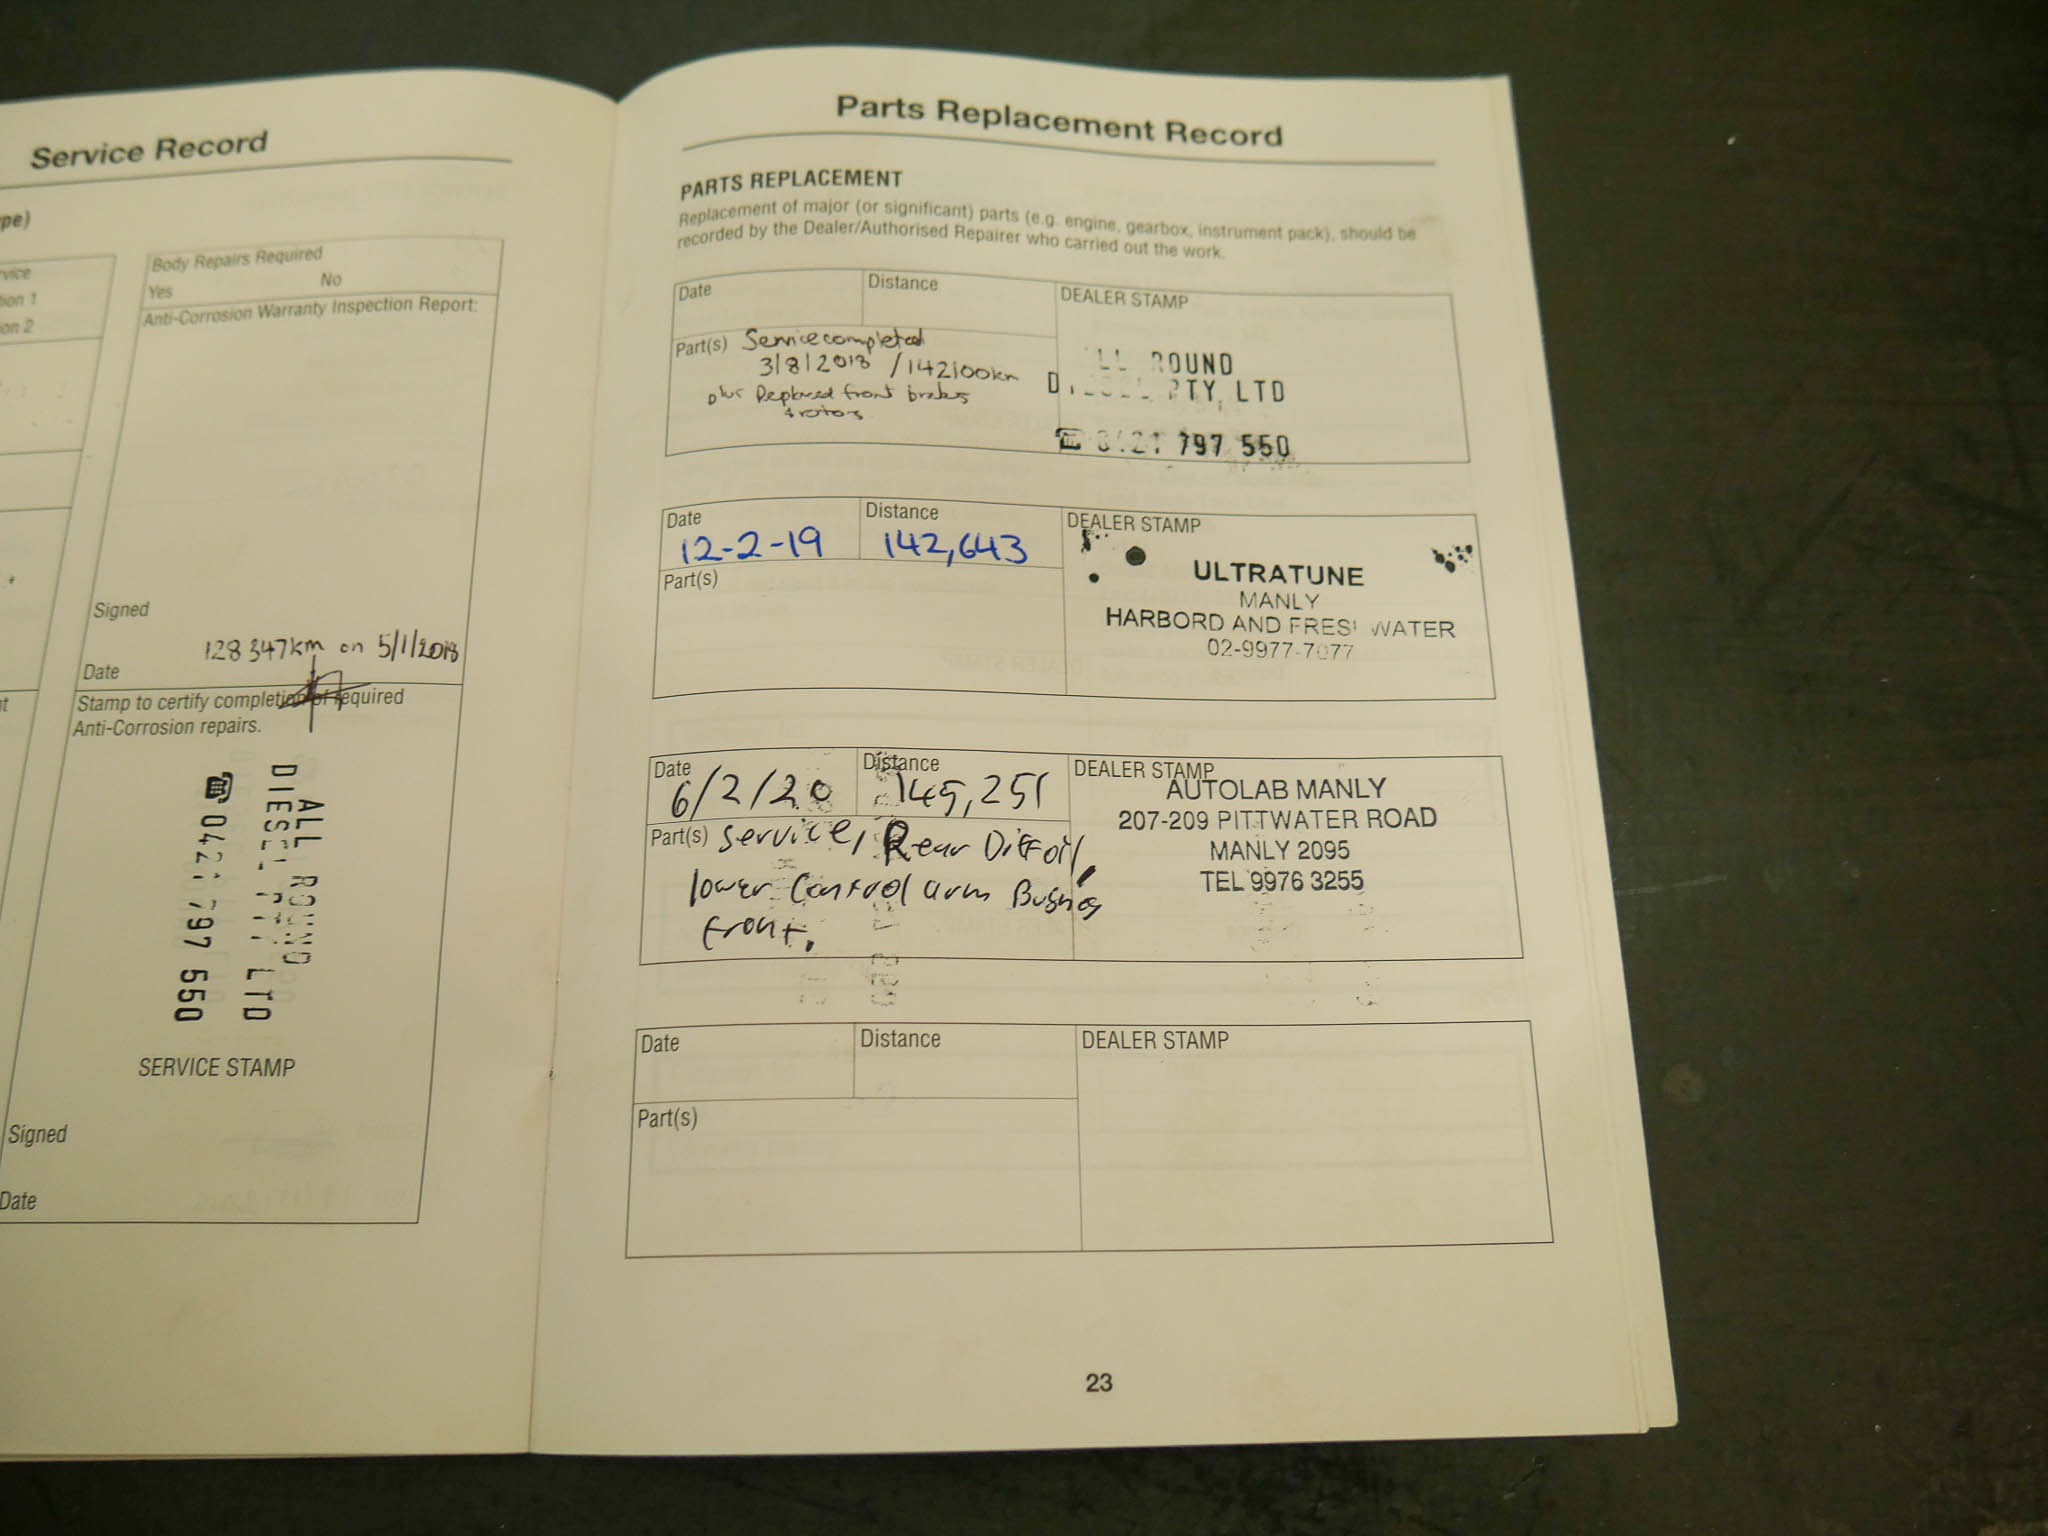 Service Record
pe)
rvice
tion 1
ion 2
Body Repairs Required
Yes No
Anti-Corrosion Warranty Inspection Report:
Signed
128 347km on 5/1/2018
Date
Stamp to certify completion of required
Anti-Corrosion repairs.
ALL ROUND
DIESEL PTY LTD
☎ 0421 797 550
SERVICE STAMP
Signed
Date
Parts Replacement Record
PARTS REPLACEMENT
Replacement of major (or significant) parts (e.g. engine, gearbox, instrument pack), should be
recorded by the Dealer/Authorised Repairer who carried out the work.
Date Distance DEALER STAMP
Part(s) Service completed
3/8/2018 /142100km
plus Replaced front brakes
& rotors
ROUND
PTY, LTD
☎ 0421 797 550
Date Distance DEALER STAMP
12-2-19 142,643
Part(s)
ULTRATUNE
MANLY
HARBORD AND FRESHWATER
02-9977-7077
Date Distance DEALER STAMP
6/2/20 145,251
Part(s) Service, Rear Diff oil,
lower Control arm Bushes
front.
AUTOLAB MANLY
207-209 PITTWATER ROAD
MANLY 2095
TEL 9976 3255
Date Distance DEALER STAMP
Part(s)
23